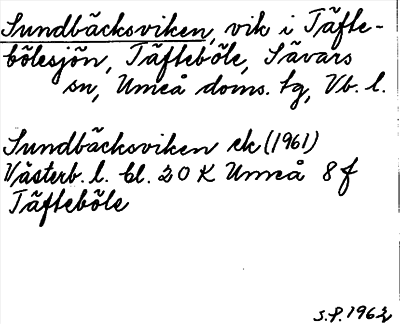 Sundbäcksviken, vik i Täfte-
bölesjön, Täfteböle, Sävars
sn, Umeå doms. tg, Vb. l.
Sundbäcksviken ek (1961)
Västerb. l. bl. 20 K Umeå 8 f
Täfteböle
S.P. 1962